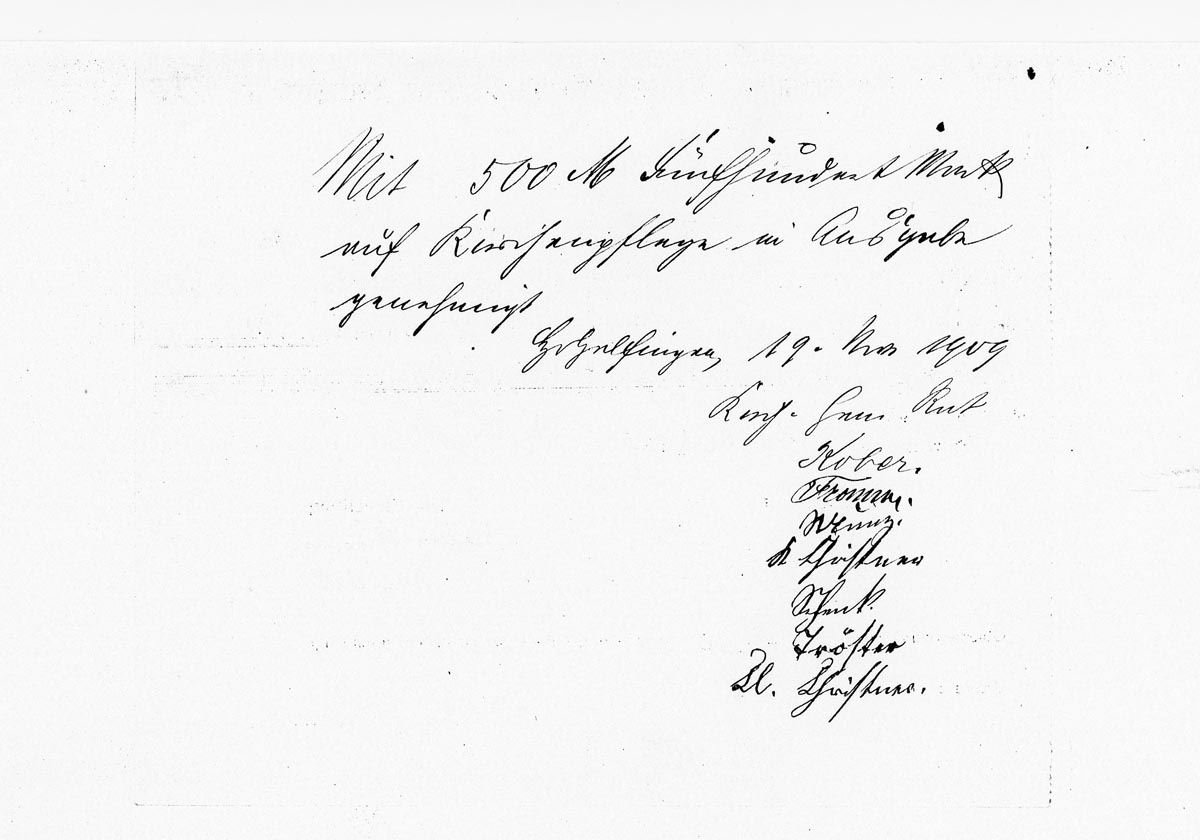 Mit 500 M Fünfhundert Mark
auf Kirchenpflege in Ausgabe
genehmigt
Holzelfingen, 19. Nov 1909
Kirch. Gem Rat
Kober.
Fromm.
K Christner
Schenk.
Tröster
Christner.